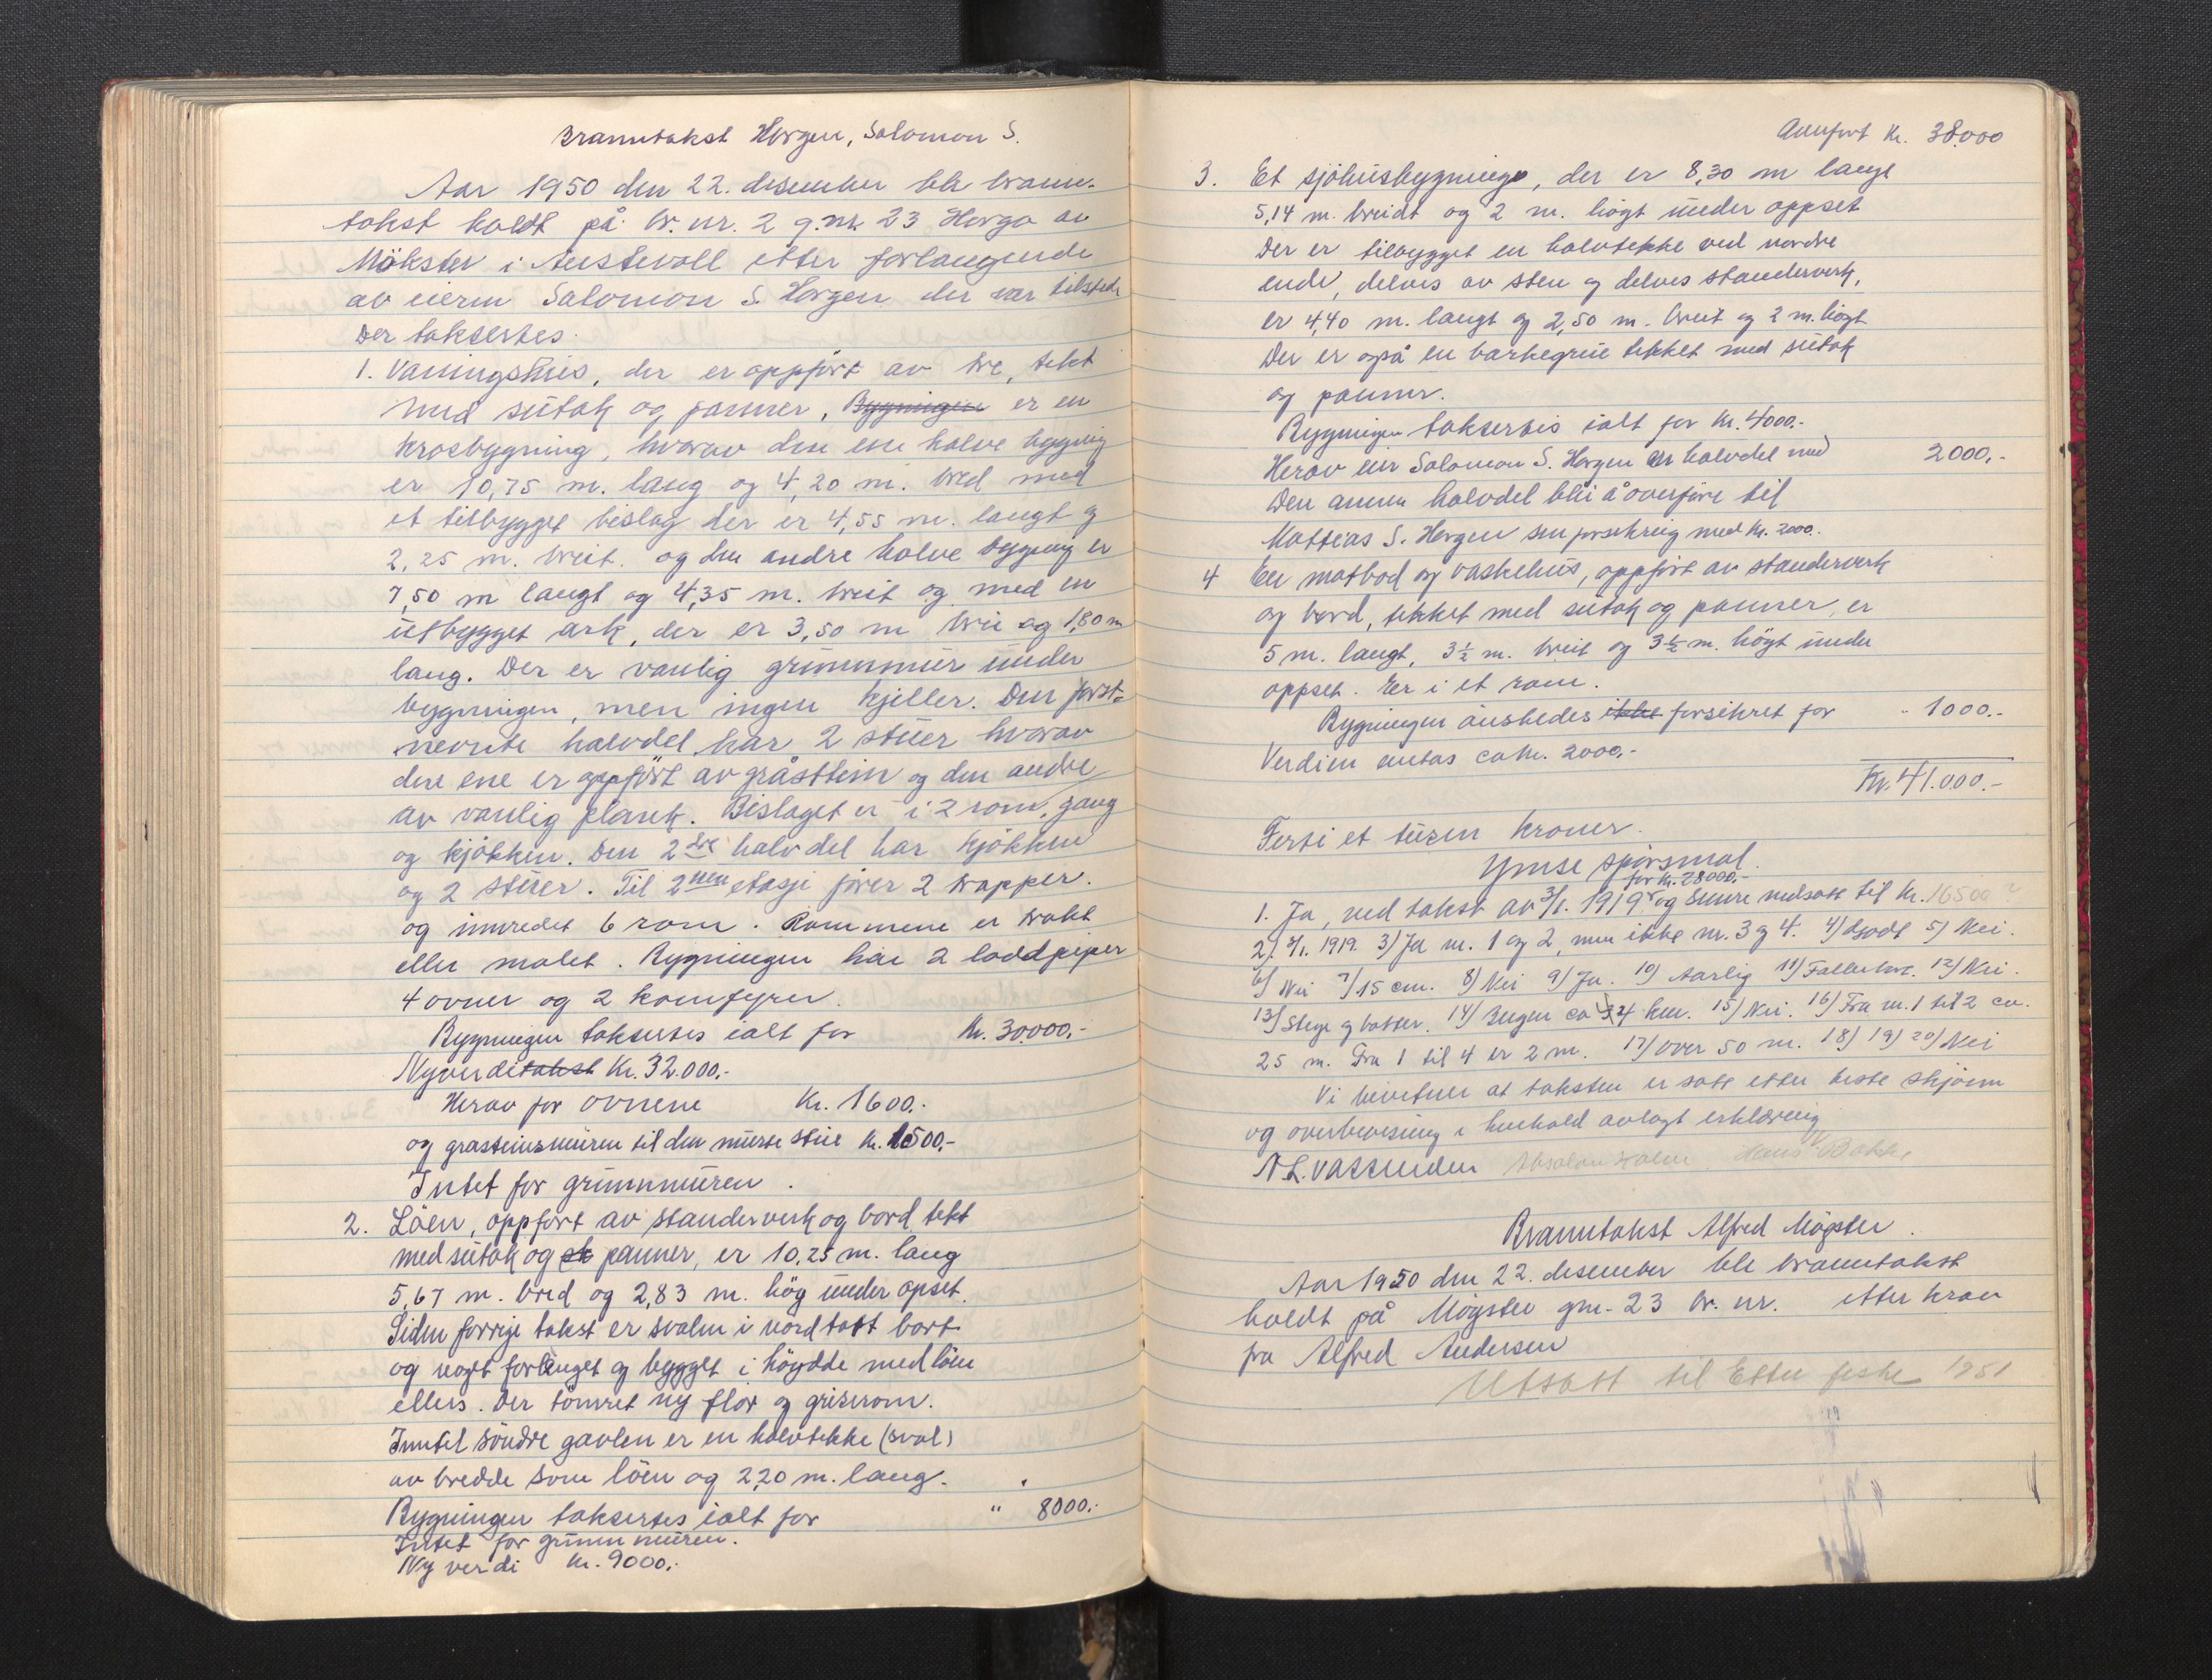 Branntakst Horgen, Salomon S.
Aar 1950 den 22. desember ble brann-
takst holdt på br. nr. 2 g.nr. 23 Horgo av
Mökster i Austevoll etter forlangende
av eieren Salomon S. Horgen der var tilstede
Der taksertes.
1. Vaaningshus, der er oppført av tre, tekt
med sutak og panner, Bygningen er en
krosbygning, hvorav den ene halve bygnig
er 10,75 m. lang og 4,20 m. bred med
et tilbygget bislag der er 4,55 m. langt og
2,25 m. breit. og den andre halve bygnig er
7,50 m langt og 4,35 m. breit og med en
utbygget ark, der er 3,50 m brei og 1,80 m
lang. Der er vanlig grunnmur under
bygningen, men ingen kjeller. Den först-
nevnte halvdel har 2 stuer hvorav
den ene er oppfört av gråstein og den andre
av vanlig plank. Bislaget er i 2 rom, gang
og kjökken. Den 2dre halvdel har kjökken
og 2 stuer. Til 2nen etasje förer 2 trapper.
og innredet 6 rom. Rommene er trekt
eller malet. Bygningen har 2 loddpiper
4 ovner og 2 komfyrer.
Bygningen taksertes ialt for Kr. 30000,-
Nyverditakst Kr. 32.000,-
Herav for ovnene Kr. 1600.-
og grasteinsmuren til den murte stue Kr. 1500,-
Intet for grunnmuren.
2. Löen, oppført av standerverk og bord tekt
med sutak og panner, er 10,25 m. lang
5,67 m. bred og 2,83 m. hög under opset.
Siden forrige takst er svalen i nord tatt bort
og noget forlenget og bygget i höydde med löen
ellers. Der tömret ny flor og griserom.
Inntil söndre gavlen er en halvtekke (sval)
av bredde som löen og 2,20 m. lang.
Bygningen taksertes ialt for " 8000.-
Intet for grunnmuren.
Ny verdi Kr. 9000.-
Överfört Kr. 38.000
3. Et sjöhusbygning, der er 8,30 m lang
5,14 m. breidt og 2 m. högt under oppset
Der er tilbygget en halvtekke ved nordre
ende, delvis av sten og delvis standerverk,
er 4,40 m. langt og 2,50 m. breit og 2 m. högt
Der er også en barkegrue tekket med sutak
og panner.
Bygningen taksertes ialt for Kr. 4000.-
Herav eier Salomon S. Horgen en halvdel med 2000.-
Den annen halvdel blir å overföre til
Mattias S. Horgen sin forsikrig med Kr. 2000.
4 En matbod og vaskehus, oppfört av standerverk
og bord, tekket med sutak og panner, er
5 m. langt, 3½ m. breit og 3½ m. högt under
oppset. Er i et rom.
Bygningen önskedes ikke forsikret for " 1000.-
Verdien antas ca Kr. 2000.-
Kr. 41.000.-
Förti et tusen kroner.
Ymse spörsmal.
for Kr. 28000.-
1. Ja, ved takst av 3/1. 1919 og senere nedsatt til Kr. 16500
2). 3/1. 1919. 3) Ja nr. 1 og 2, men ikke nr. 3 og 4. 4) Godt 5) Nei.
6) Nei 7) 15 cm. 8) Nei 9) Ja. 10) Aarlig 11) 12) Nei.
13) Stege og bötter. 14) Bergen ca 34 km. 15) Nei. 16) Fra nr. 1 til 2 ca.
25 m. Fra 1 til 4 er 2 m. 17) Over 50 m. 18) 19) 20) Nei
Vi bevitner at taksten er satt etter beste skjönn
og overbevisning i henhold avlagt erklæring
N L. Vassenden Hans Bakke
Branntakst Alfred Mögster.
Aar 1950 den 22. desember ble branntakst
holdt på Mögster gnr. 23 br. nr. etter krav
fra Alfred Andersen
Utsatt til Etter feske 1951